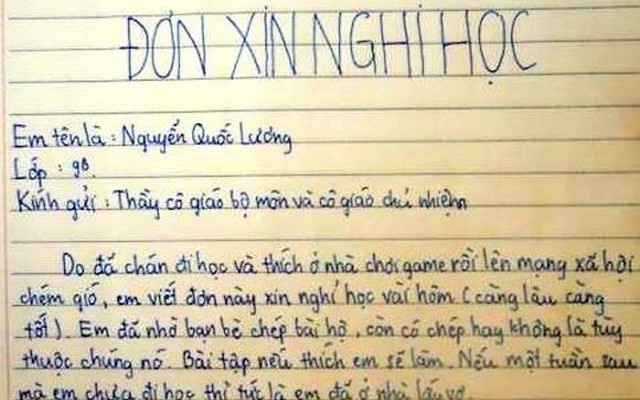 ĐƠN XIN NGHỈ HỌC
Em tên là : Nguyễn Quốc Lương
Lớp : 9B.
Kính gửi : Thầy cô giáo bộ môn và cô giáo chủ nhiệm
Do đã chán đi học và thích ở nhà chơi game rồi lên mạng xã hội
chém gió, em viết đơn này xin nghỉ học vài hôm (càng lâu càng
tốt). Em đã nhờ bạn bè chép bài hộ, còn có chép hay không là tùy
thuộc chúng nó. Bài tập nếu thích em sẽ làm. Nếu một tuần sau
mà em chưa đi học thì tức là em đã ở nhà lấy vợ.